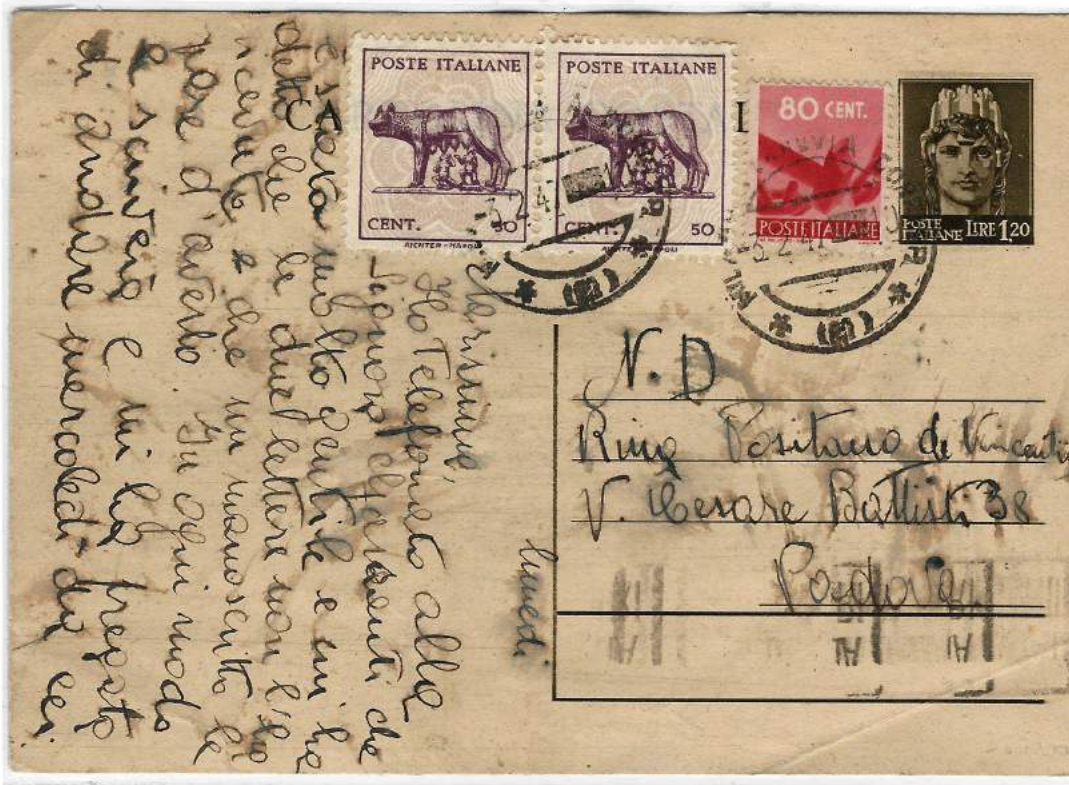 POSTE ITALIANE
CENT. 50
RICHTER-NAPOLI
POSTE ITALIANE
CENT. 50
80 CENT.
POSTE ITALIANE
POSTE ITALIANE LIRE 1,20
N. D
Rina Positano de Vincentiis
V. Cesare Battisti 38
Padova
lunedì
Carissima,
Ho telefonato alla
Signora che
è stata molto gentile e mi ha
detto che le due lettere non l'ha
ricevute e che un manoscritto le
pare d'averlo. In ogni modo
e mi ha pregato
di andare mercoledì da lei